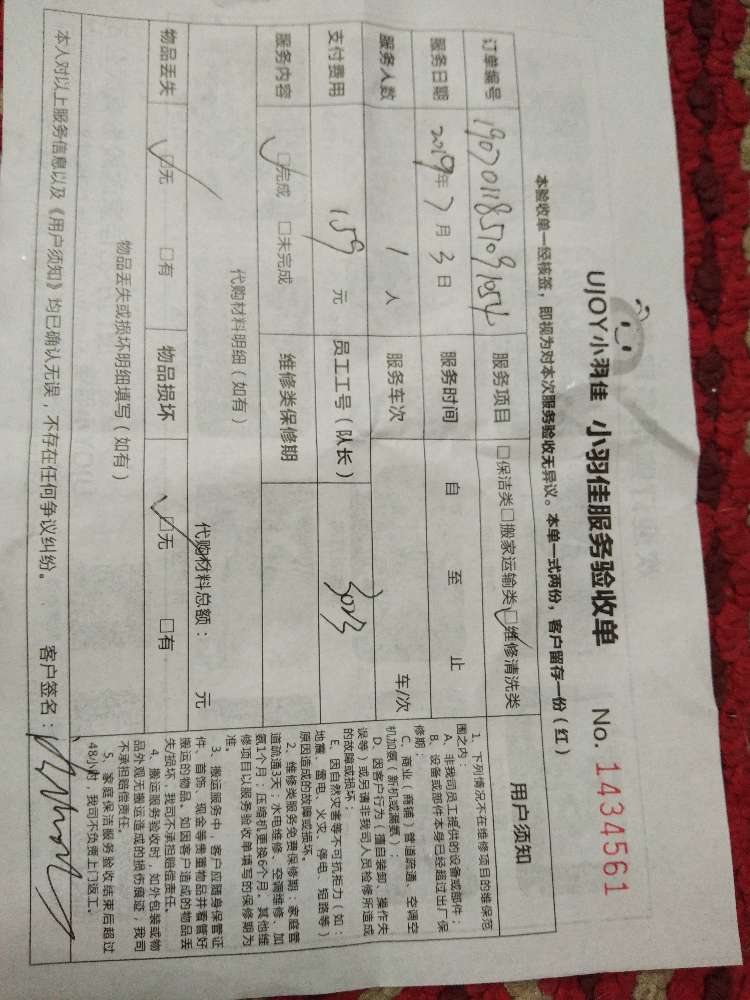 UJOY小羽佳 小羽佳服务验收单 No. 1434561
本验收单一经核签，即视为对本次服务验收无异议。本单一式两份，客户留存一份（红）
订单编号 服务项目 □保洁类□搬家运输类□维修清洗类
服务日期 2019年7月3日 服务时间 自 至 止
服务人数 1 人 服务车次 车/次
支付费用 159 元 员工工号（队长） 3023
服务内容 □完成 □未完成 维修类保修期
代购材料明细（如有） 代购材料总额： 元
物品丢失 □无 □有 物品损坏 □无 □有
物品丢失或损坏明细填写（如有）
本人对以上服务信息以及《用户须知》均已确认无误，不存在任何争议纠纷。 客户签名：
用户须知
1、下列情况不在维修项目的维保范
围之内：
A、非我司员工提供的设备或部件；
B、设备或部件本身已经超过出厂保
修期；
C、商业（商铺）管道疏通、空调空
机加氨（新机或漏氨）；
D、因客户行为（擅自装卸、操作失
误等）或另请非我司人员检修所造成
的故障或损坏。
E、因自然灾害等不可抗拒力（如：
地震、雷电、火灾、停电、短路等）
原因造成的故障或损坏。
2、维修类服务免费保修期：家庭管
道疏通3天；水电维修、空调维修、加
氨1个月；压缩机更换6个月。其他维
修项目以服务验收单填写的保修期为
准。
3、搬运服务中，客户应随身保管证
件、首饰、现金等贵重物品并看管好
搬运的物品，如因客户造成的物品丢
失/损坏，我司不承担赔偿责任。
4、搬运服务验收时，如外包装或物
品外观无搬运造成的损伤痕迹，我司
不承担赔偿责任。
5、家庭保洁服务验收结束后超过
48小时，我司不负责上门返工。